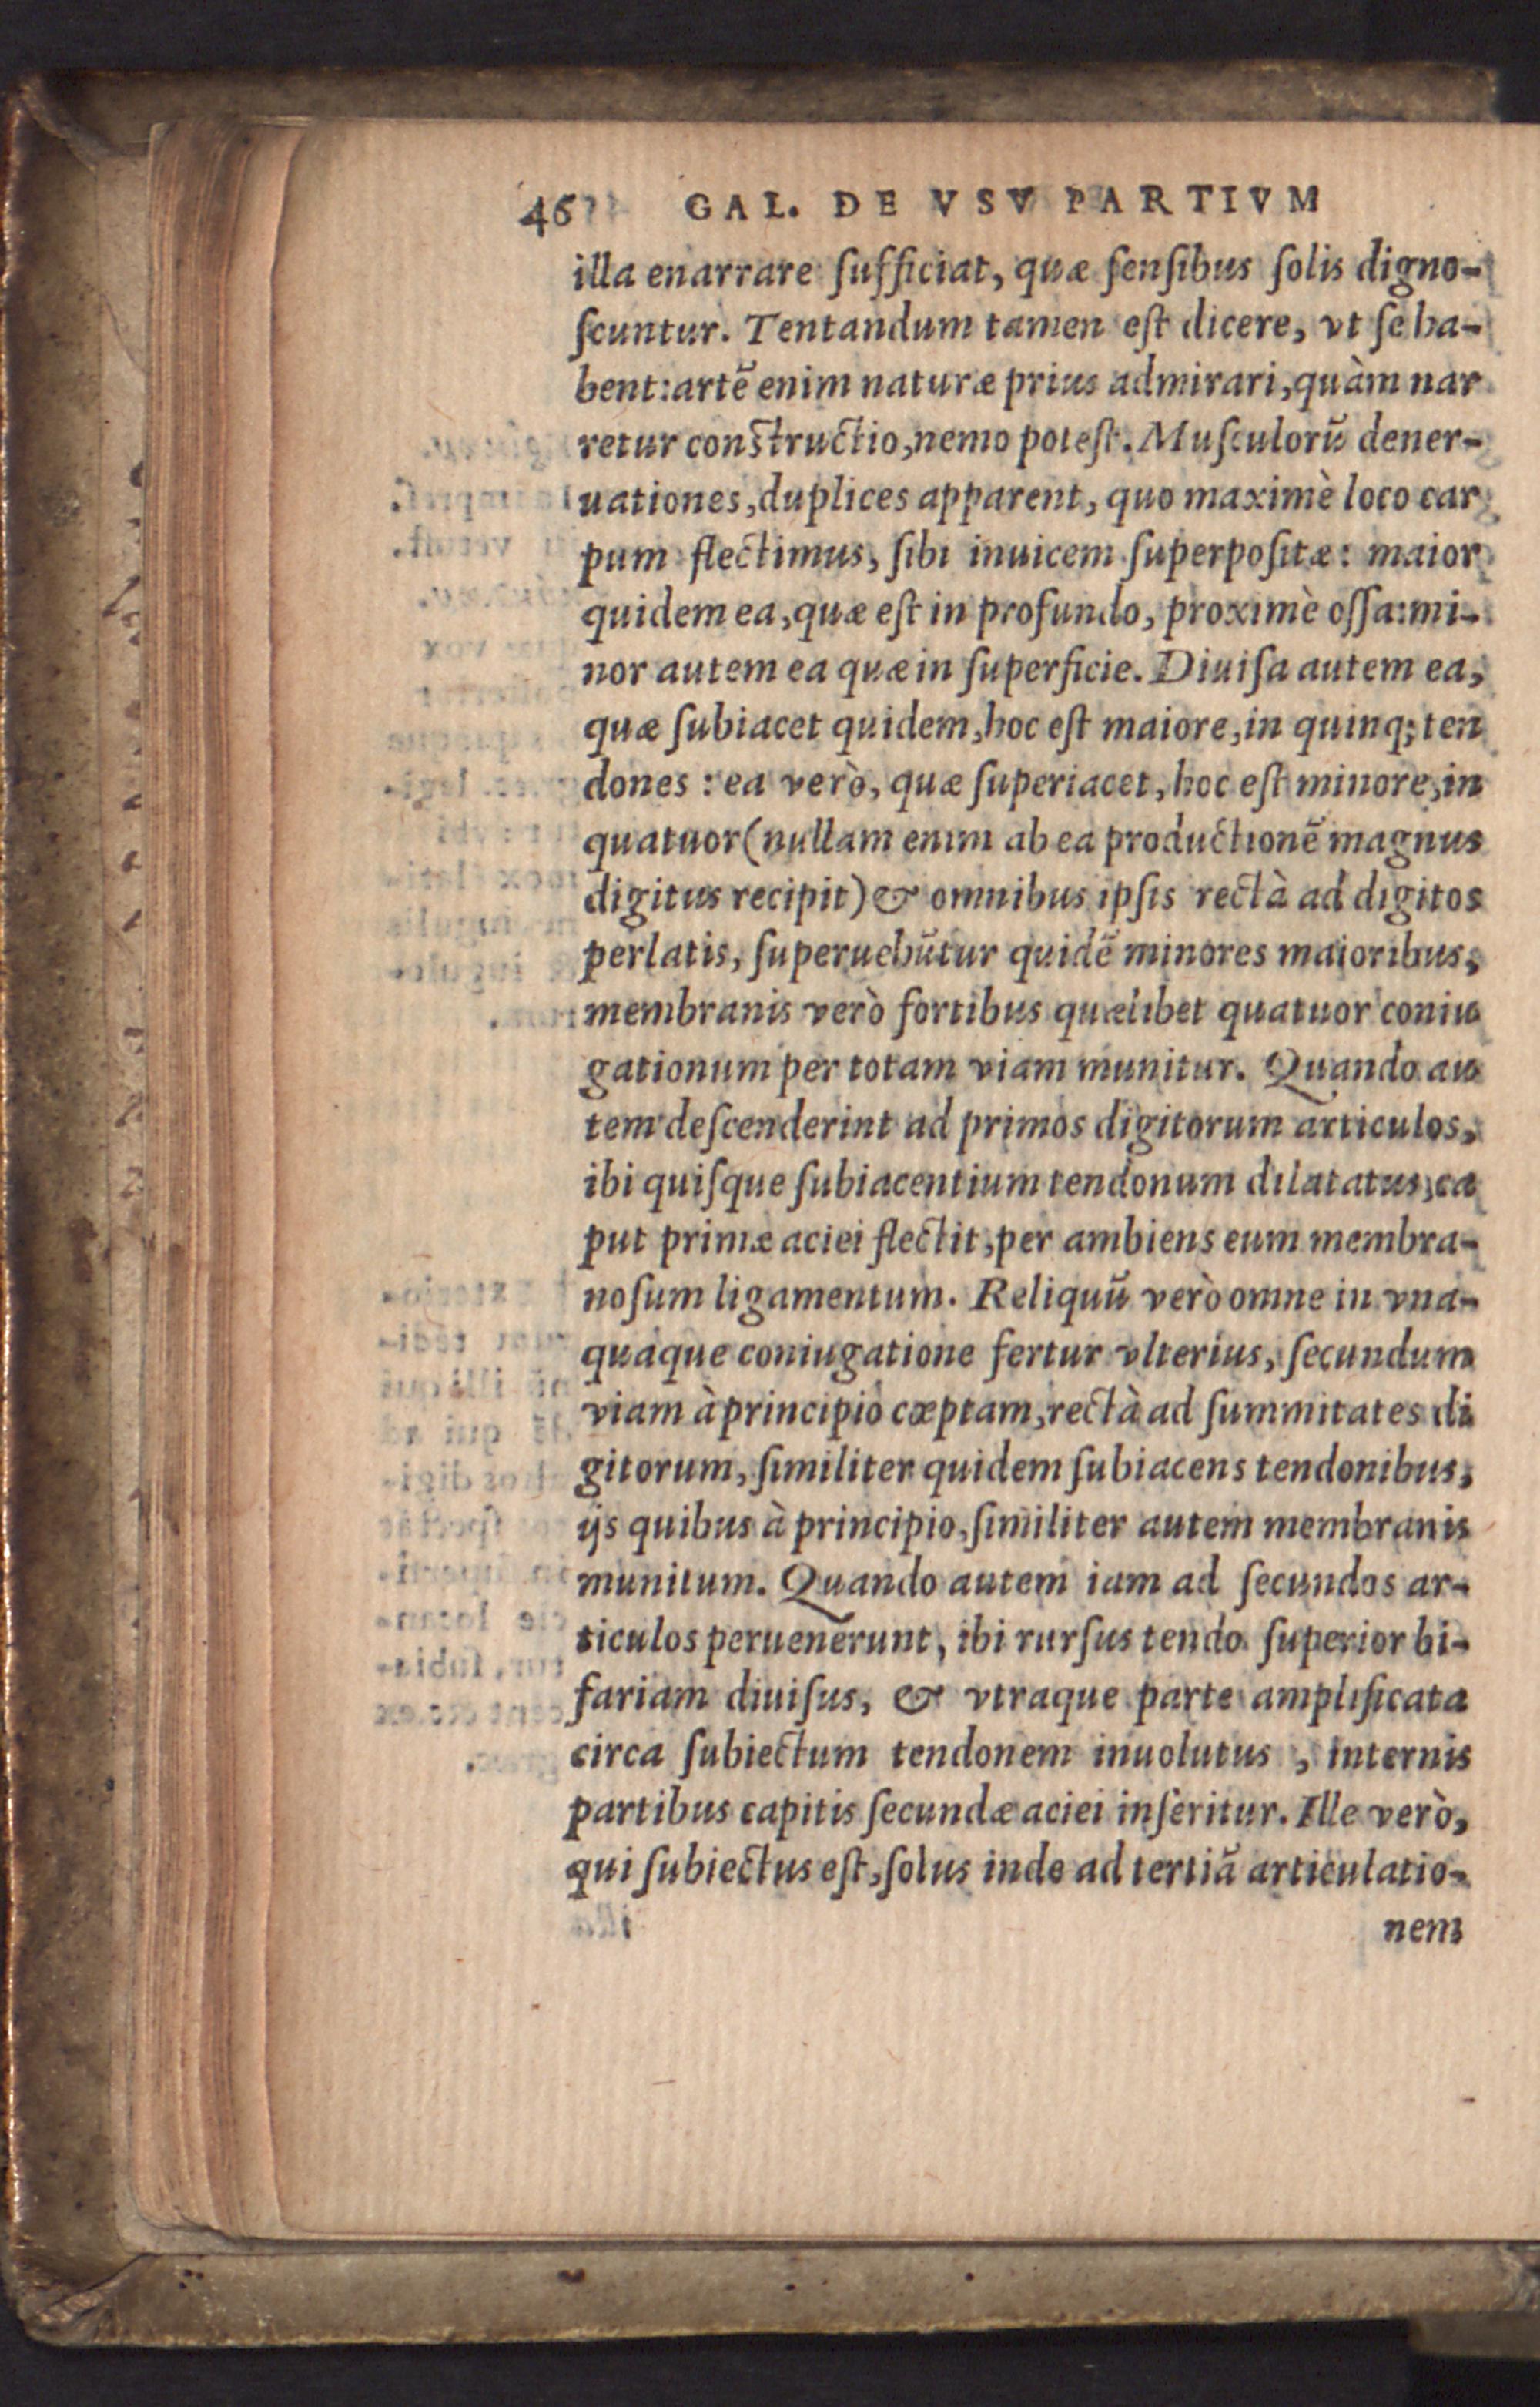 46 GAL. DE VSV PARTIVM
illa enarrare ſufficiat, quæ ſenſibus ſolis digno-
ſcuntur. Tentandum tamen eſt dicere, vt ſe ha-
bent: artẽ enim naturæ prius admirari, quàm nar
retur conſtructio, nemo poteſt. Muſculorũ dener-
uationes, duplices apparent, quo maximè loco car
pum flectimus, ſibi inuicem ſuperpoſitæ: maior
quidem ea, quæ eſt in profundo, proximè oſſa: mi-
nor autem ea quæ in ſuperficie. Diuiſa autem ea,
quæ ſubiacet quidem, hoc eſt maiore, in quinq; ten
dones: ea verò, quæ ſuperiacet, hoc eſt minore, in
quatuor (nullam enim ab ea productionẽ magnus
digitus recipit) & omnibus ipſis rectà ad digitos
perlatis, ſuperuehũtur quidẽ minores maioribus,
membranis verò fortibus quælibet quatuor coniu
gationum per totam viam munitur. Quando au
tem deſcenderint ad primos digitorum articulos,
ibi quiſque ſubiacentium tendonum dilatatus, ca
put primæ aciei flectit, per ambiens eum membra-
noſum ligamentum. Reliquũ verò omne in vna-
quaque coniugatione fertur vlterius, ſecundum
viam à principio cœptam, rectà ad ſummitates di
gitorum, ſimiliter quidem ſubiacens tendonibus,
ijs quibus à principio, ſimiliter autem membranis
munitum. Quando autem iam ad ſecundos ar-
ticulos peruenerunt, ibi rurſus tendo ſuperior bi-
fariam diuiſus, & vtraque parte amplificata
circa ſubiectum tendonem inuolutus, internis
partibus capitis ſecundæ aciei inſeritur. Ille verò,
qui ſubiectus eſt, ſolus inde ad tertiã articulatio-
nem